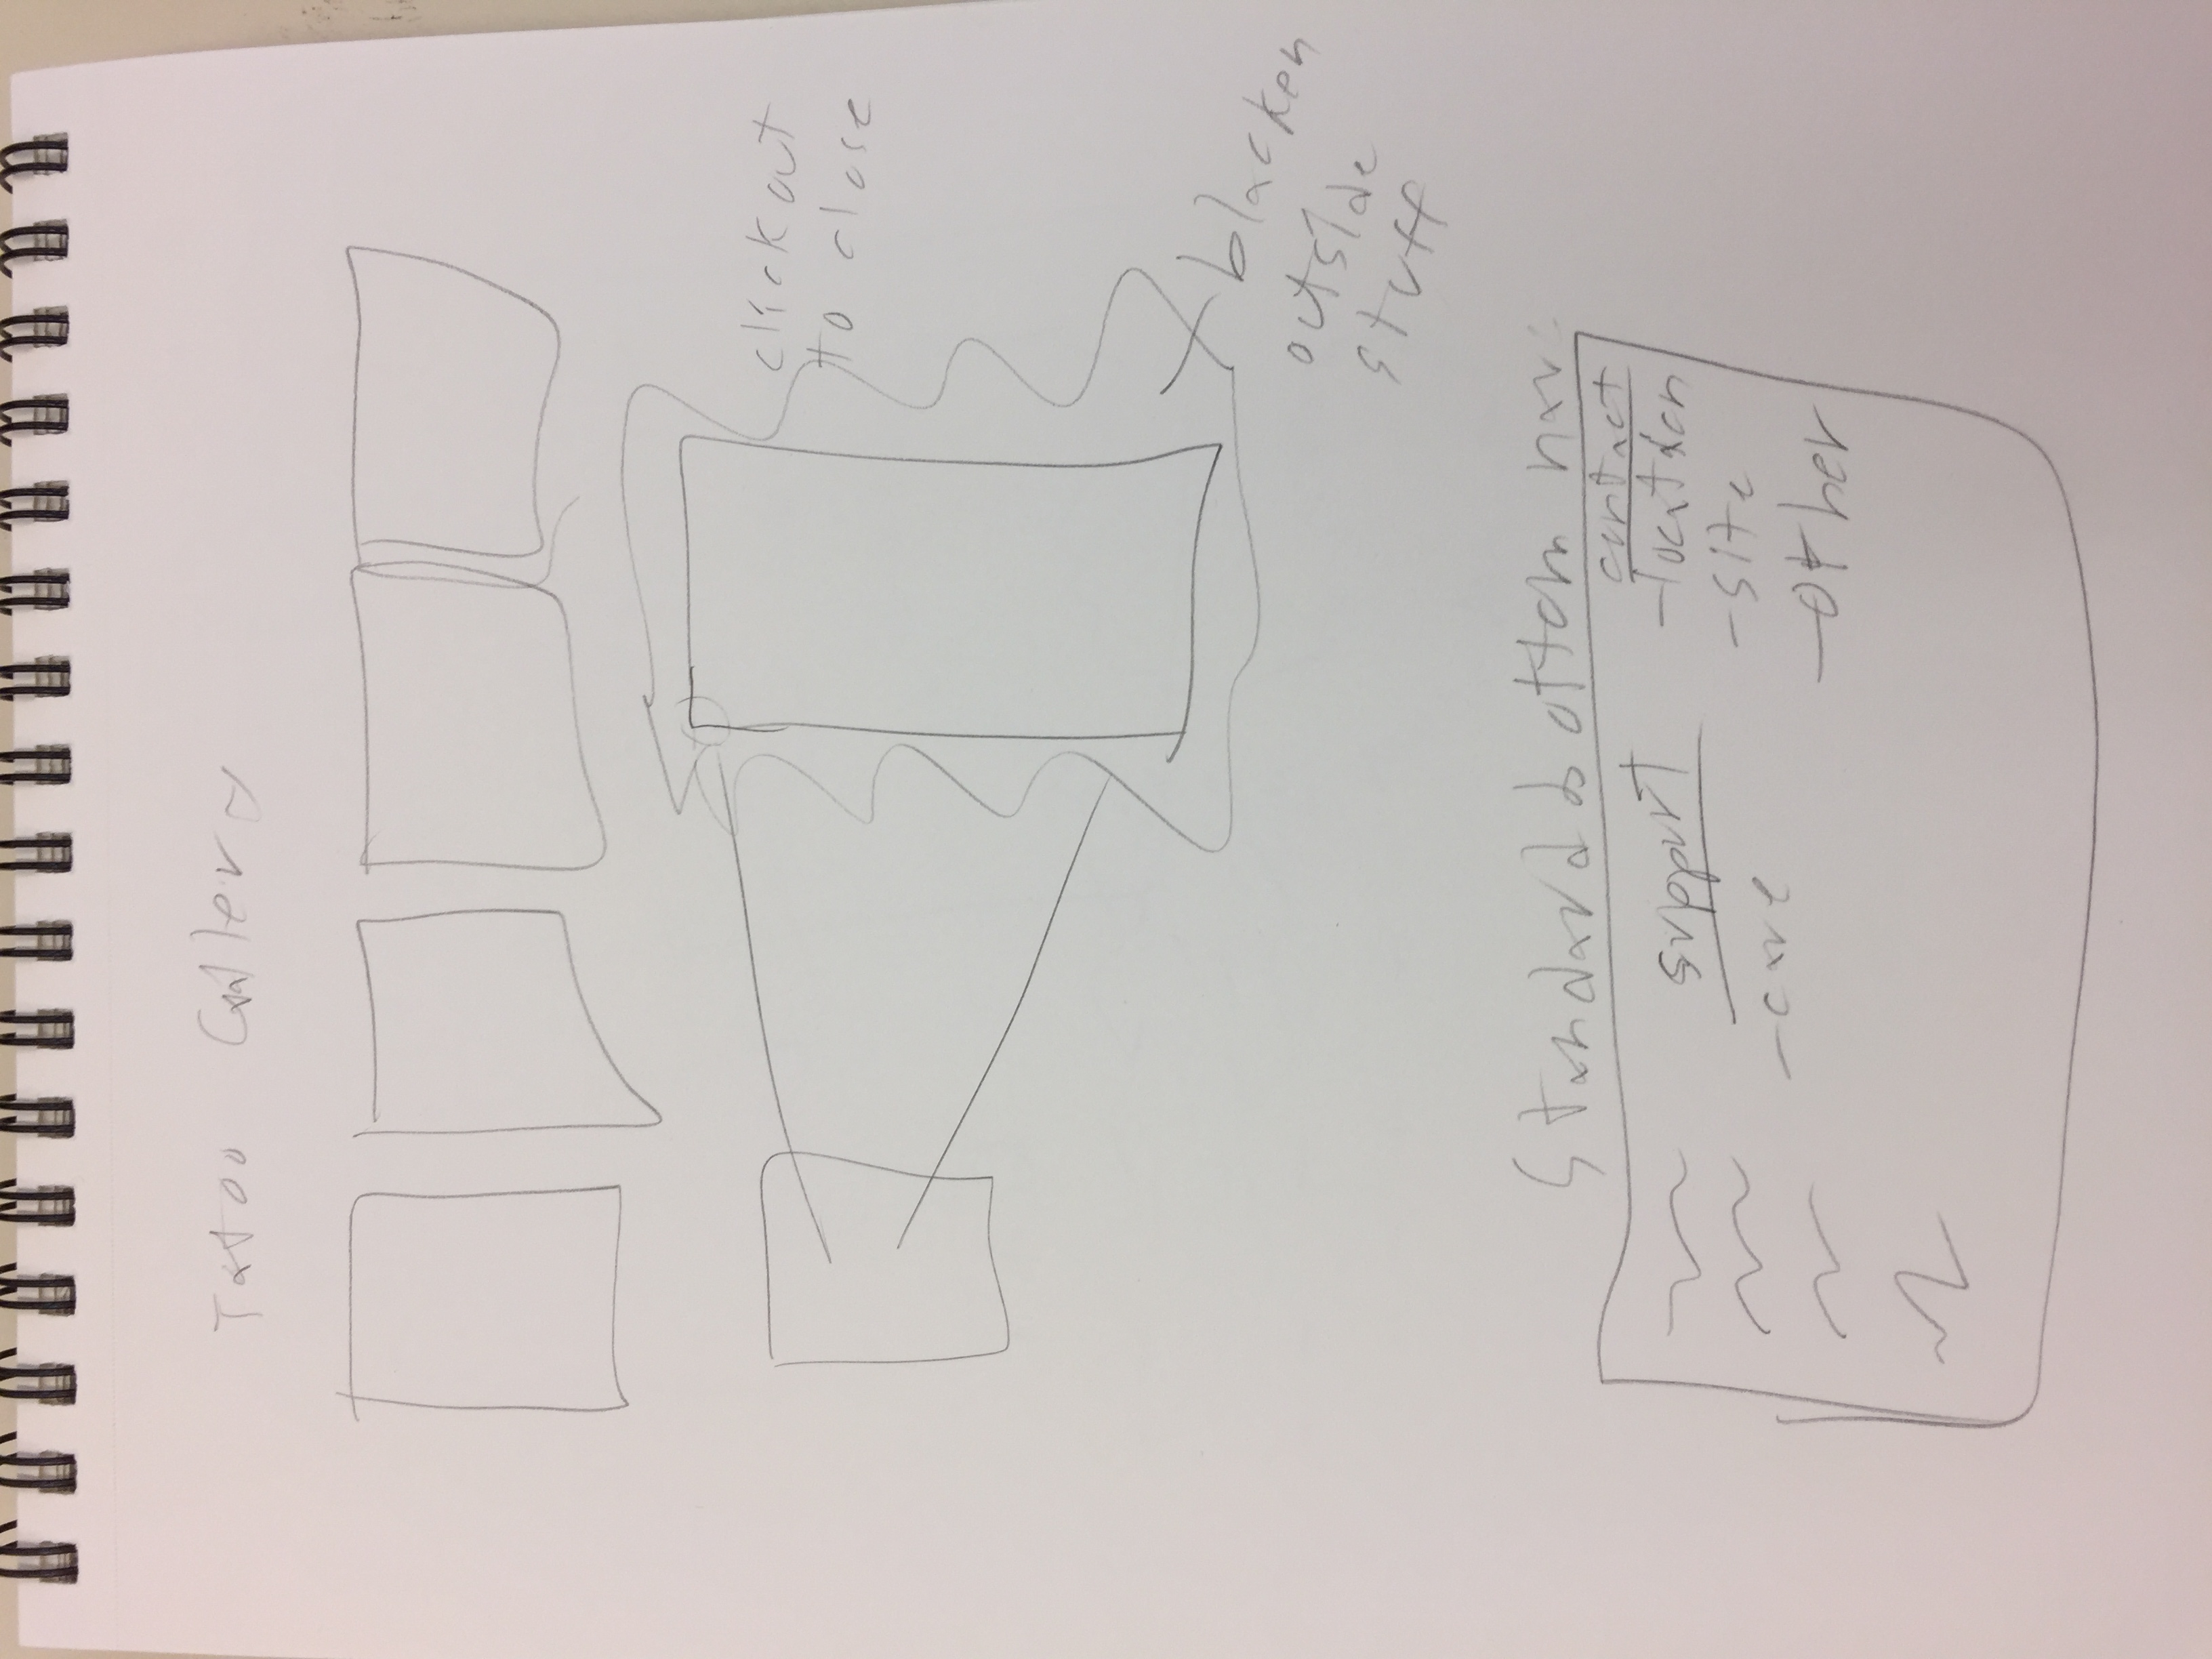 Tatoo Gallery
click out
to close
blacken
outside
stuff
Standard bottom nav
support
-care
contact
-location
-site
-other